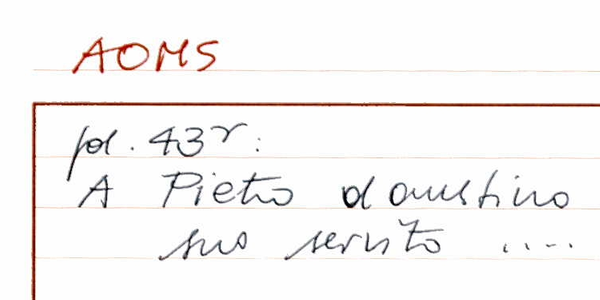 AOMS
fol. 43r:
A Pietro daustino
suo servito ....